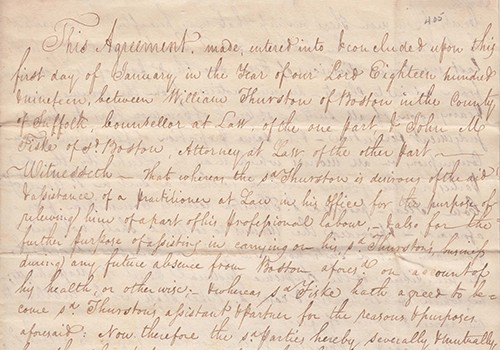 405
This Agreement, made, intered into & concluded upon this
first day of January, in the Year of our Lord Eighteen hundred
& nineteen, between William Thurston of Boston in the County
of Suffolk, Counsellor at Law, of the one part & John M
Fiske of sd. Boston, Attorney at Law of the other Part —
Witnesseth — That whereas the sd Thurston is desirous of the aid
& assistance of a practitioner at Law in his Office for the purpose of
relieving him of a part of his Professional labour, & also for the
further purpose of assisting in carrying on his sd Thurstons business
during any future absence from Boston aforesd. on account of
his health, or otherwise; & whereas sd Fiske hath agreed to be-
come sd Thurstons assistant & partner for the reasons & purposes
aforesaid: Now therefore the sd Parties hereby, severally, & mutually